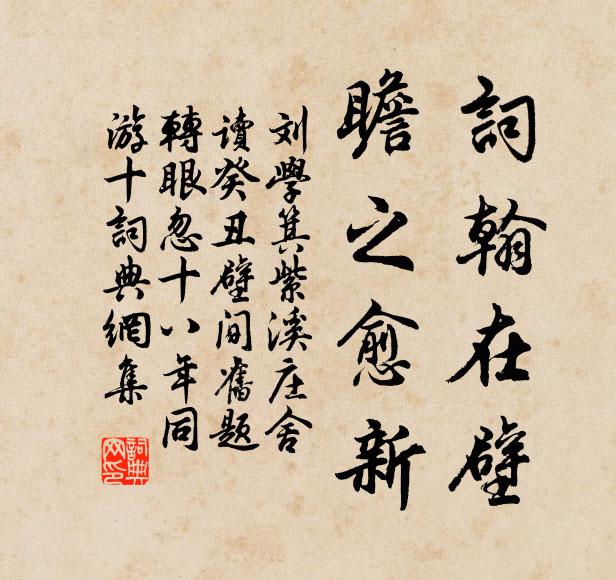 詞翰在壁
瞻之愈新
刘學箕紫溪庄舍
讀癸丑壁間舊題
轉眼忽十八年同
游十詞典網集
詞典网印